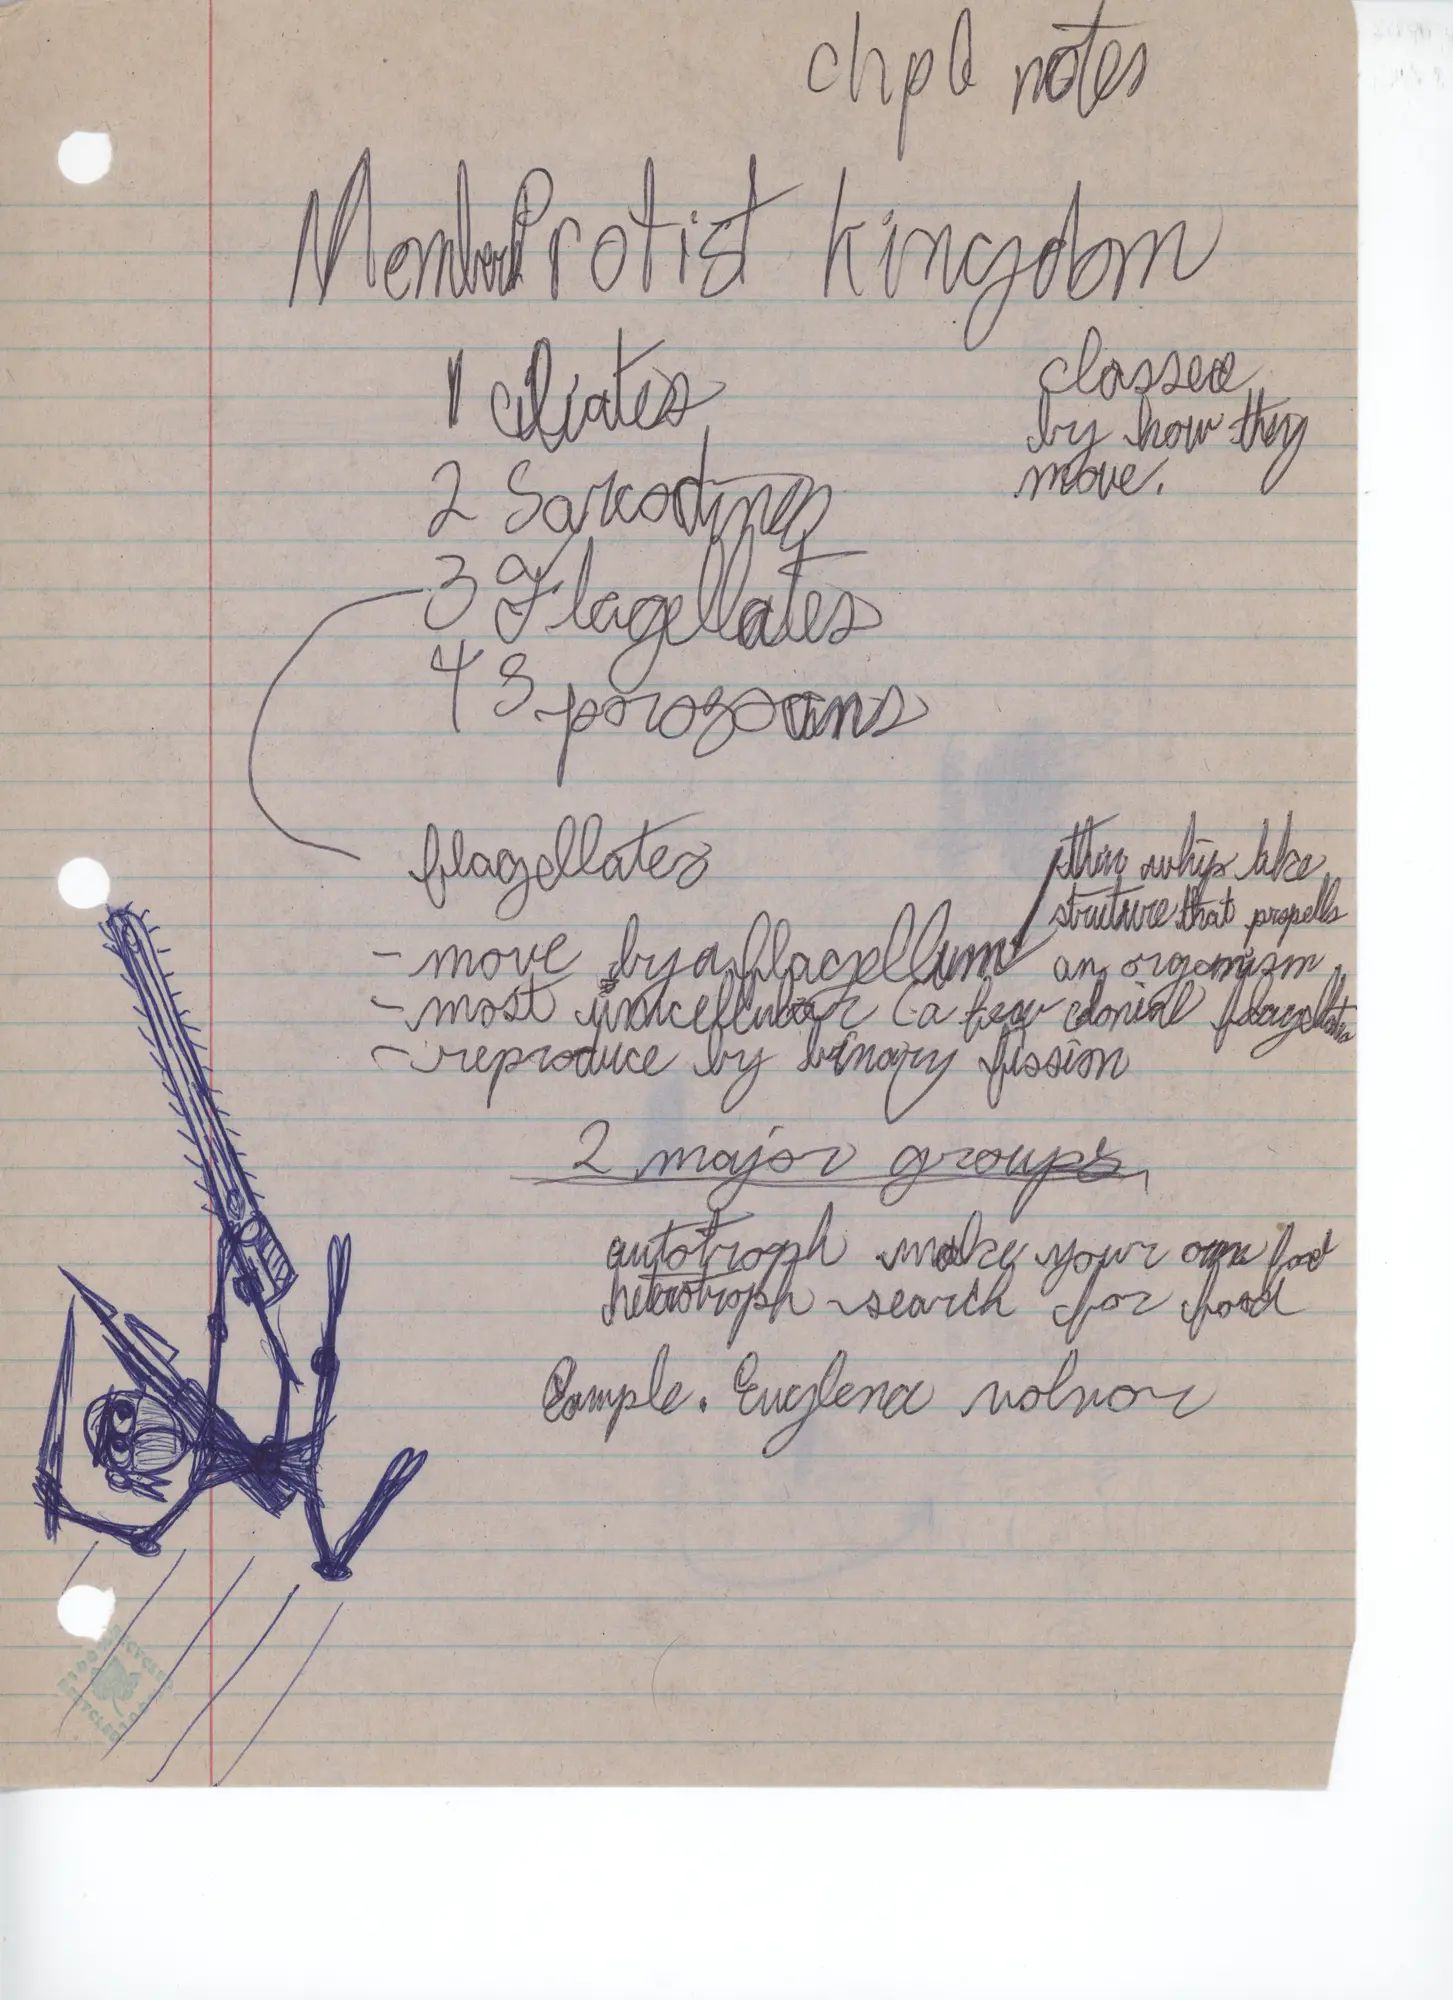 chp 6 notes
Members Protist Kingdom
1 ciliates
classed
by how they
move.
2 Sarcodines
3 Flagellates
4 Sporozoans
flagellates
thin whip like
struture that propells
an organism
- move by a flagellum
- most unicellular (a few colonial flagellates
- reproduce by binary fission
2 major groups
autotroph make your own food
heterotroph - search for food
Example. Euglena volvox
RECYCLED